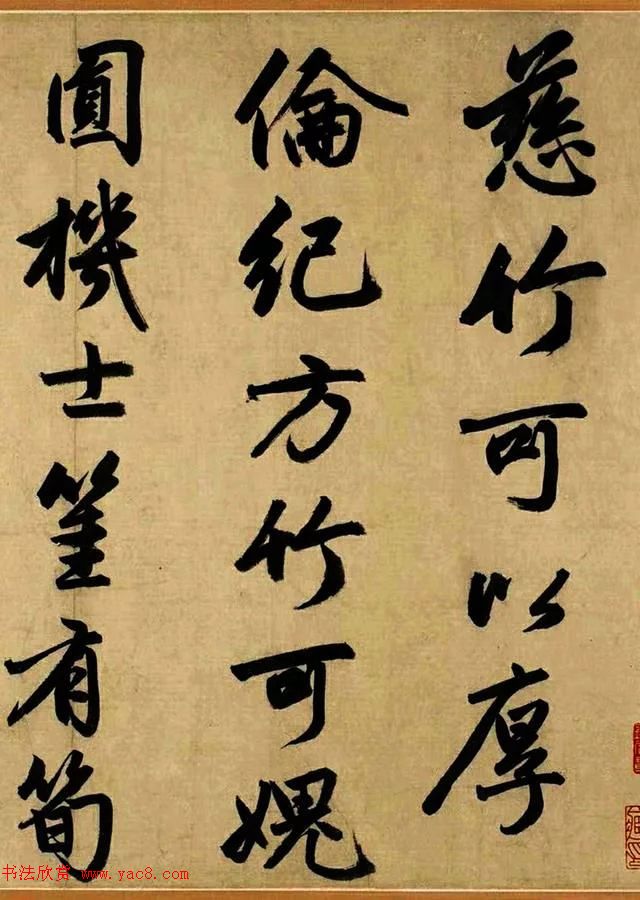 慈竹可以厚
倫紀方竹可媿
圓機士筀有筍
书法欣赏 www.yac8.com